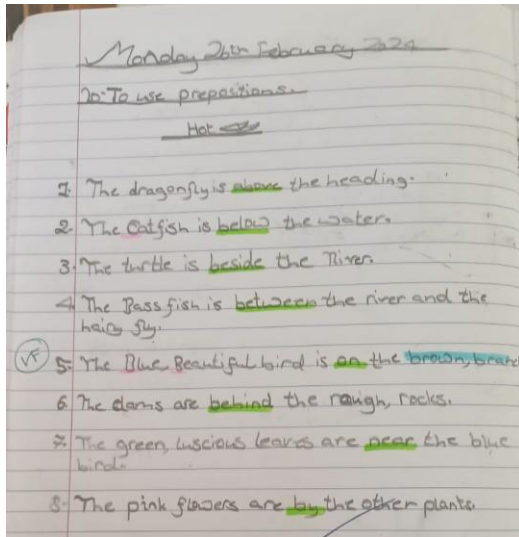 Monday 26th February 2024
LO: To use prepositions.
Hot
1. The dragonfly is above the heading.
2. The Catfish is below the water.
3. The turtle is beside the River.
4. The Bass fish is between the river and the
hairy fly.
5. The Blue Beautiful bird is on the brown, branc
6. The clams are behind the rough, rocks.
7. The green, luscious leaves are near the blue
bird.
8. The pink flowers are by the other plants.